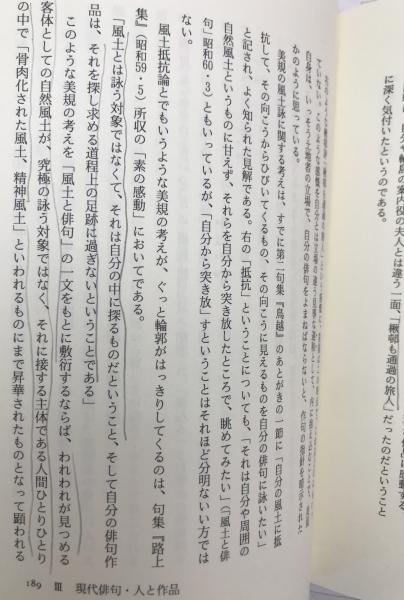 に深く気付いたというのである。
かのように思っている。
美規の風土詠に関する考えは、すでに第二句集『鳥越』のあとがきの一節に「自分の風土に抵
抗して、その向こうからひびいてくるもの、その向こうに見えるものを自分の俳句に詠いたい」
と記され、よく知られた見解である。右の「抵抗」ということについても、「それは自分や周囲の
自然風土というものに甘えず、それらを自分から突き放したところで、眺めてみたい」（「風土と俳
句」昭和60・3）ともいっているが、「自分から突き放」すということはそれほど分明ないい方では
ない。
風土抵抗論とでもいうような美規の考えが、ぐっと輪郭がはっきりしてくるのは、句集『路上
集』（昭和59・5）所収の「素の感動」においてである。
「風土とは詠う対象ではなくて、それは自分の中に探るものだということ、そして自分の俳句作
品は、それを探し求める道程上の足跡に過ぎないということである」
このような美規の考えを「風土と俳句」の一文をもとに敷衍するならば、われわれが見つめる
客体としての自然風土が、究極の詠う対象ではなく、それに接する主体である人間ひとりひとり
の中で「骨肉化された風土、精神風土」といわれるものにまで昇華されたものとなって顕われる
189 Ⅲ 現代俳句・人と作品